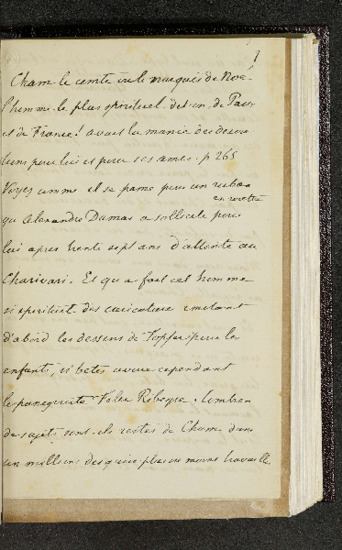 Cham le comte ou le marquis de Noé
l'homme le plus spirituel de Paris
et de France! avait la manie des deco
pour lui et pour ses amis. p 265
Voyez comme il se pame pour un ruban
en revoltre
qu Alexandre Dumas a sollicité pour
lui apres trente sept ans d'attente au
Charivari. Et qu a fait cet homme
si spirituel des caricatures imitant
d'abord les dessins de Topfer pour les
enfants, si betes avoue cependant
le panegyriste Felix Ribeyre. Combien
de sujets sont ils restés de Cham dans
un millions des quels plus ou moins travaillé